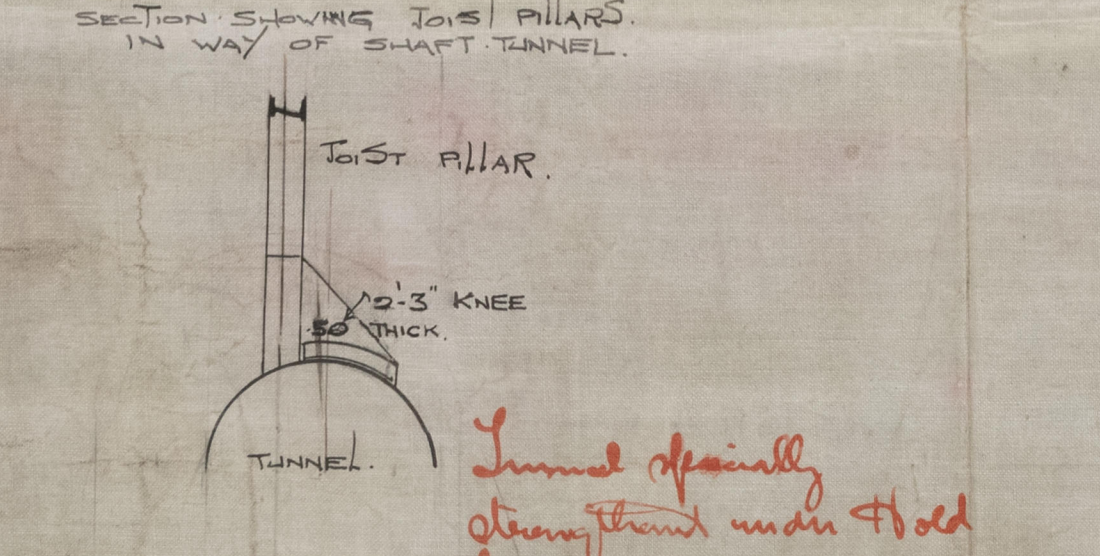 SECTION SHOWING JOIST PILLARS.
IN WAY OF SHAFT TUNNEL.
JOIST PILLAR.
2'-3" KNEE
.50 THICK.
TUNNEL.
Tunnel specially
strengthened under Hold